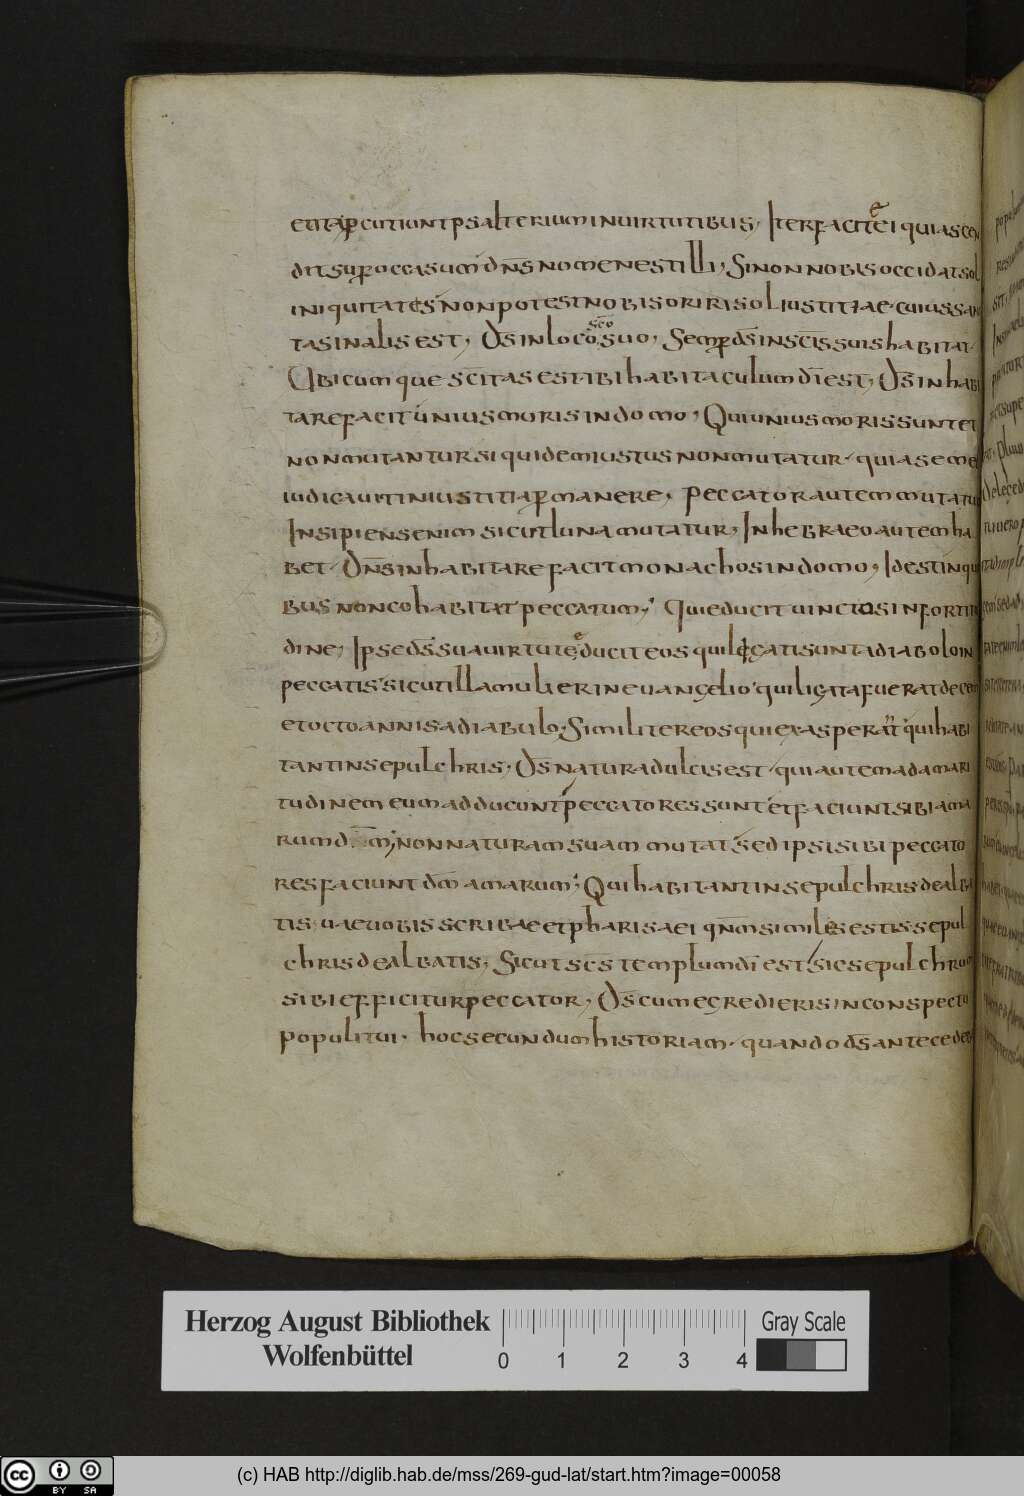 et ita percutiunt psalterium in uirtutibus, Iter facite ei qui ascen
dit super occasum dns nomen est illi, Si non nobis occidat sol
iniquitatis non potest nobis oriri sol iustitiae cuius san
tas in alis est, Ds in loco sco suo, Semper ds in scis suis habitat
Ubicumque scitas est ibi habitaculum di est, Ds inhabi
tare facit unius moris in domo, Qui unius moris sunt et
non mutantur siquidem iustus non mutatur quia seme
iudicauit in iustitia permanere, Peccator autem mutatu
Insipiens enim sicut luna mutatur, In hebraeo autem ha
bet Dns inhabitare facit monachos in domo, Id est in qui
bus non cohabitat peccatum, Qui educit uinctos in fortitu
dine, Ipse ds sua uirtute educit eos qui legati sunt a diabolo in
peccatis sicut illa mulier in euangelio qui ligata fuerat decem
et octo annis a diabulo, Similiter eos qui exasperant qui habi
tant in sepulchris, Ds natura dulcis est qui autem ad amari
tudinem eum adducont peccatores sunt et faciunt sibi ama
rum dm, non naturam suam mutat sed ipsi sibi peccato
res faciunt dm amarum, Qui habitant in sepulchris dealba
tis uae uobis scribae et pharisaei qnm similes estis sepul
chris dealbatis, Sicut scs templum di est sic sepulchrum
sibi efficitur peccator, Ds cum egredieris in conspectu
populi tui, hoc secundum historiam quando ds antecede
Herzog August Bibliothek
Wolfenbüttel
0 1 2 3 4
Gray Scale
cc BY SA
(c) HAB http://diglib.hab.de/mss/269-gud-lat/start.htm?image=00058